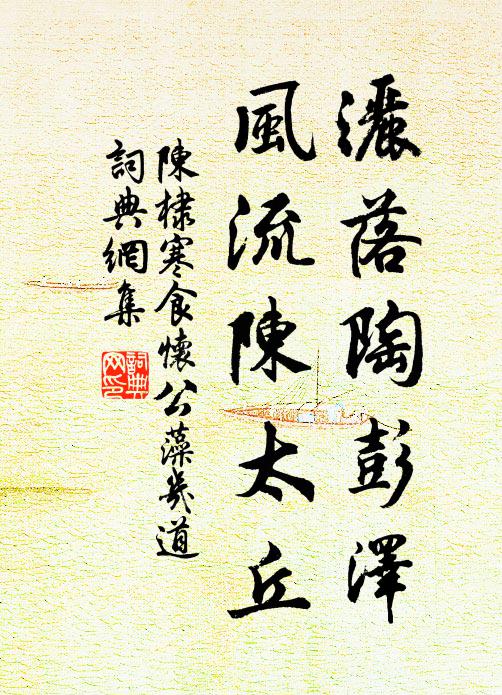 灑落陶彭澤
風流陳太丘
陳棣寒食懷公藻幾道
詞典網集
詞典
网印